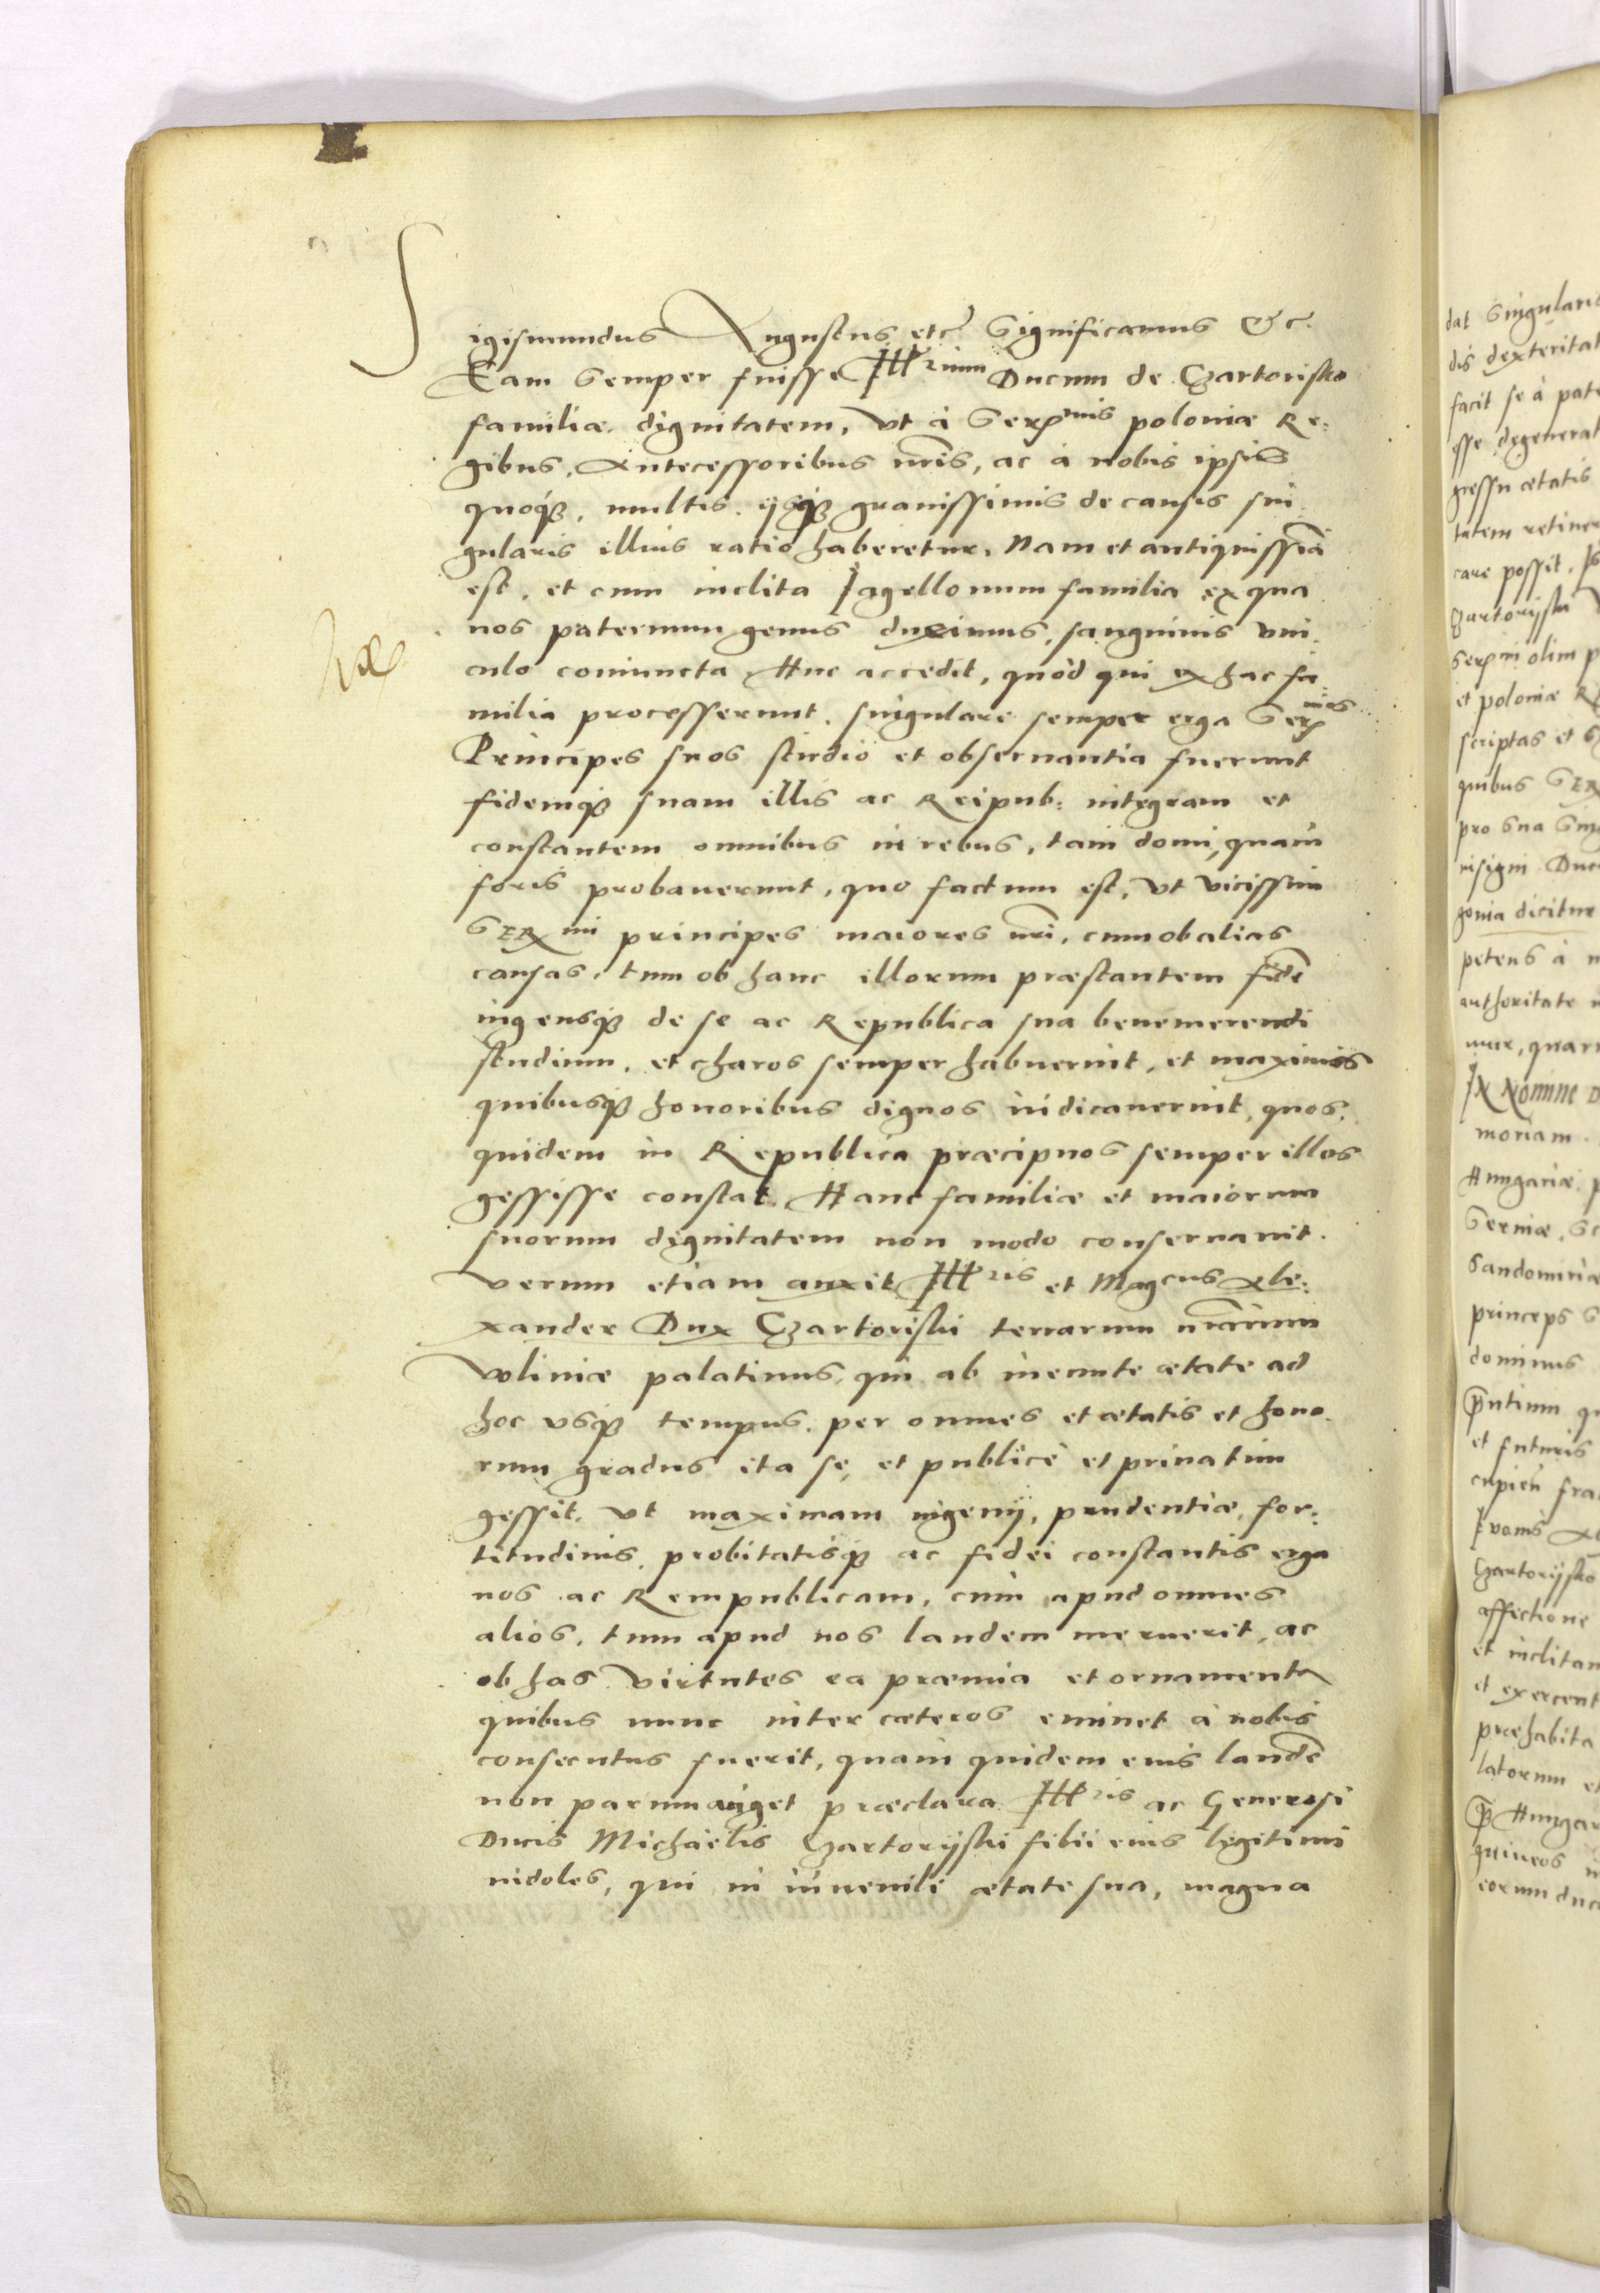 Sigismundus Augustus etc Significamus &c.
Eam semper fuisse Illrium Ducum de Czartorisko
familiæ dignitatem, vt à Serᵐⁱˢ poloniæ Re:
gibus, Antecessoribus nr̃is, ac à nobis ipsis
quoqʒ, multis ijsqʒ grauissimis de causis sin
gularis illius ratio haberetur. Nam et antiquissiã
est, et cum inclita Jagellonum familia ex qua
nos paternum genus duximus, sanguinis vin
culo coniuncta. Huc accedit, quòd qui ex hac fa:
milia processerunt, singulare semper erga Serᵐᵒˢ
Principes suos studio et obseruantia fuerunt
fidemqʒ suam illis ac Reipub: integram et
constantem omnibus in rebus, tam domi, quàm
foris probauerunt, quo factum est, vt vicissim
SERmi principes maiores nr̃i, cum ob alias
causas, tum ob hanc illorum præstantem fidẽ
ingensqʒ de se ac Republica sua benemerendi
studium, et charos semper habuerint, et maximis
quibusqʒ honoribus dignos iudicauerint, quos
quidem in Republica præcipuos semper illos
gessisse constat. Hanc familiæ et maiorum
suorum dignitatem non modo conseruauit.
verum etiam auxit Illris et Magcus Ale:
xander Dux Czartoriski terrarum nr̃arum
Voliniæ palatinus, qui ab ineunte ætate ad
hoc vsqʒ tempus, per omnes et ætatis et hono
rum gradus ita se, et publicè et priuatim
gessit, vt maximam ingenij, prudentiæ, for:
titudinis, probitatisqʒ ac fidei constantis erga
nos ac Rempublicam, cùm apud omnes
alios, tum apud nos laudem meruerit, ac
ob has virtutes ea præmia et ornamenta
quibus nunc inter cæteros eminet à nobis
consecutus fuerit, quam quidem eius laudẽ
non parum auget præclara Illris ac Generosi
Ducis Michaëlis Czartorijski filii eius legitimi
indoles, qui in iuuenili ætate sua, magna
dat singularis
facit se à
gressu ætatis
care possit.
et poloniæ
scriptas et
quibus
pro sua
insigni Duc
gonia dicitur
petens à
authoritate
mur, quar
In Nomine D
moriam.
Hungariæ
Seruiæ
Sandomiriæ
princeps
dominus
et futuris
Czartorijsko
affectione
et inclitam
et exercent
præhabita
latorum et
Hungar
eorum duc